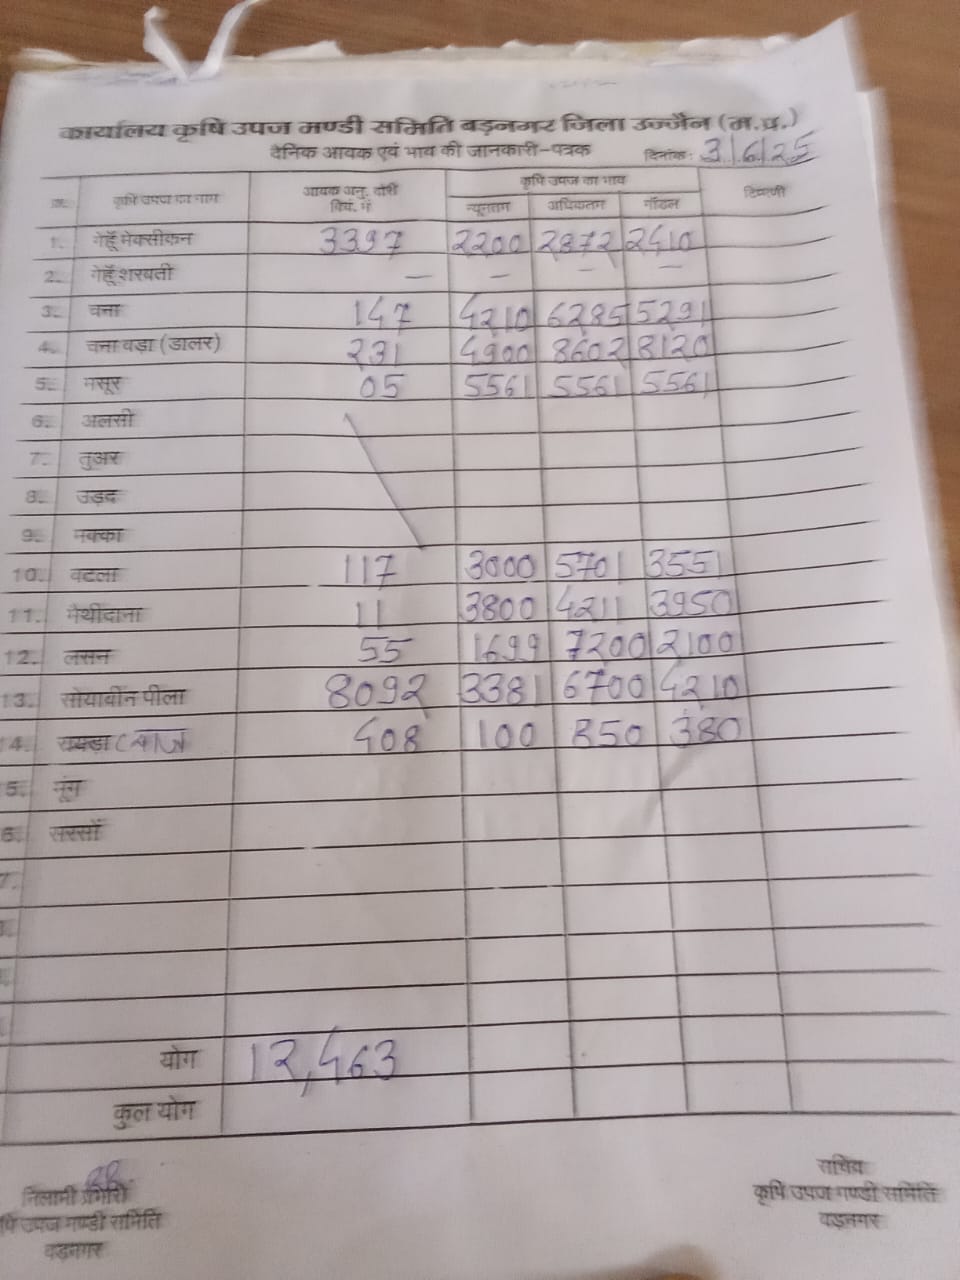 कार्यालय कृषि उपज मण्डी समिति बड़नगर जिला उज्जैन (म.प्र.)
दैनिक आवक एवं भाव की जानकारी-पत्रक दिनांक: 3/6/25
कृषि उपज का नाम आवक अनु. बोरी क्विं. में कृषि उपज का भाव टिप्पणी
न्यूनतम अधिकतम मॉडल
1. गेहूँ मेक्सीकन 3397 2200 2872 2410
2. गेहूँ शरबती — — — —
3. चना 147 4210 6285 5291
4. चना बड़ा (डालर) 231 4900 8602 8120
5. मसूर 05 5561 5561 5561
6. अलसी
7. तुअर
8. उड़द
9. मक्का
10. बटला 117 3000 5701 3551
11. मेथीदाना 11 3800 4211 3950
12. लसन 55 1699 7200 2100
13. सोयाबीन पीला 8092 3381 6700 4210
14. 408 100 850 380
5. मूंग
6. सरसों
7.
योग 12,463
कुल योग
निलामी प्रभारी
षि उपज मण्डी समिति
बड़नगर
सचिव
कृषि उपज मण्डी समिति
बड़नगर